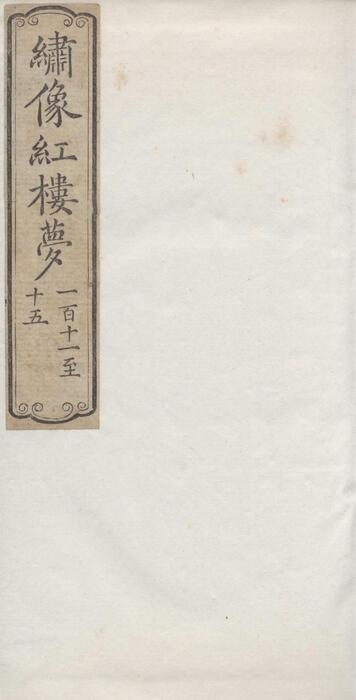 繡像紅樓夢
一百十一至
十五